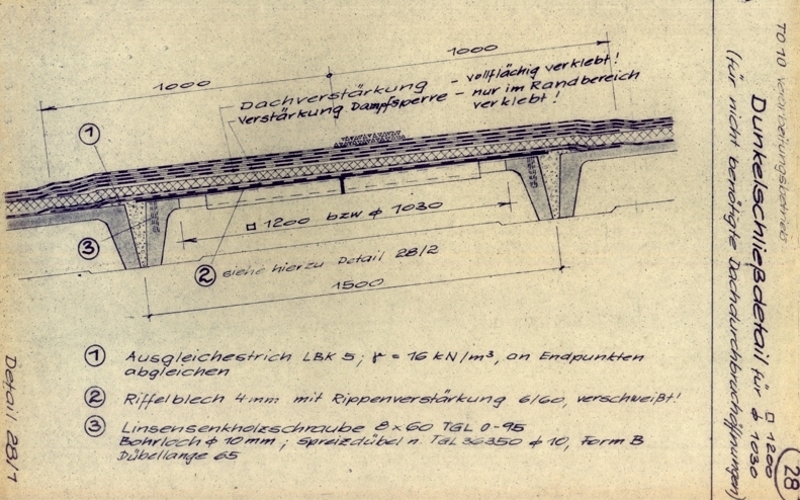 1000
1000
Dachverstärkung – vollflächig verklebt!
Verstärkung Dampfsperre – nur im Randbereich
verklebt!
1
□ 1200 bzw ϕ 1030
3
2 siehe hierzu Detail 28/2
1500
1 Ausgleichestrich LBK 5; γ = 16 kN/m³, an Endpunkten
abgleichen
2 Riffelblech 4mm mit Rippenverstärkung 6/60, verschweißt!
3 Linsensenkholzschraube 8×60 TGL 0-95
Bohrloch ϕ 10mm; Spreizdübel n. TGL 36350 ϕ 10, Form B
Dübellange 65
Detail 28/1
TO 10
Dunkelschließdetail für □ 1200
ϕ 1030
(für nicht benötigte Dachdurchbruchöffnungen)
28